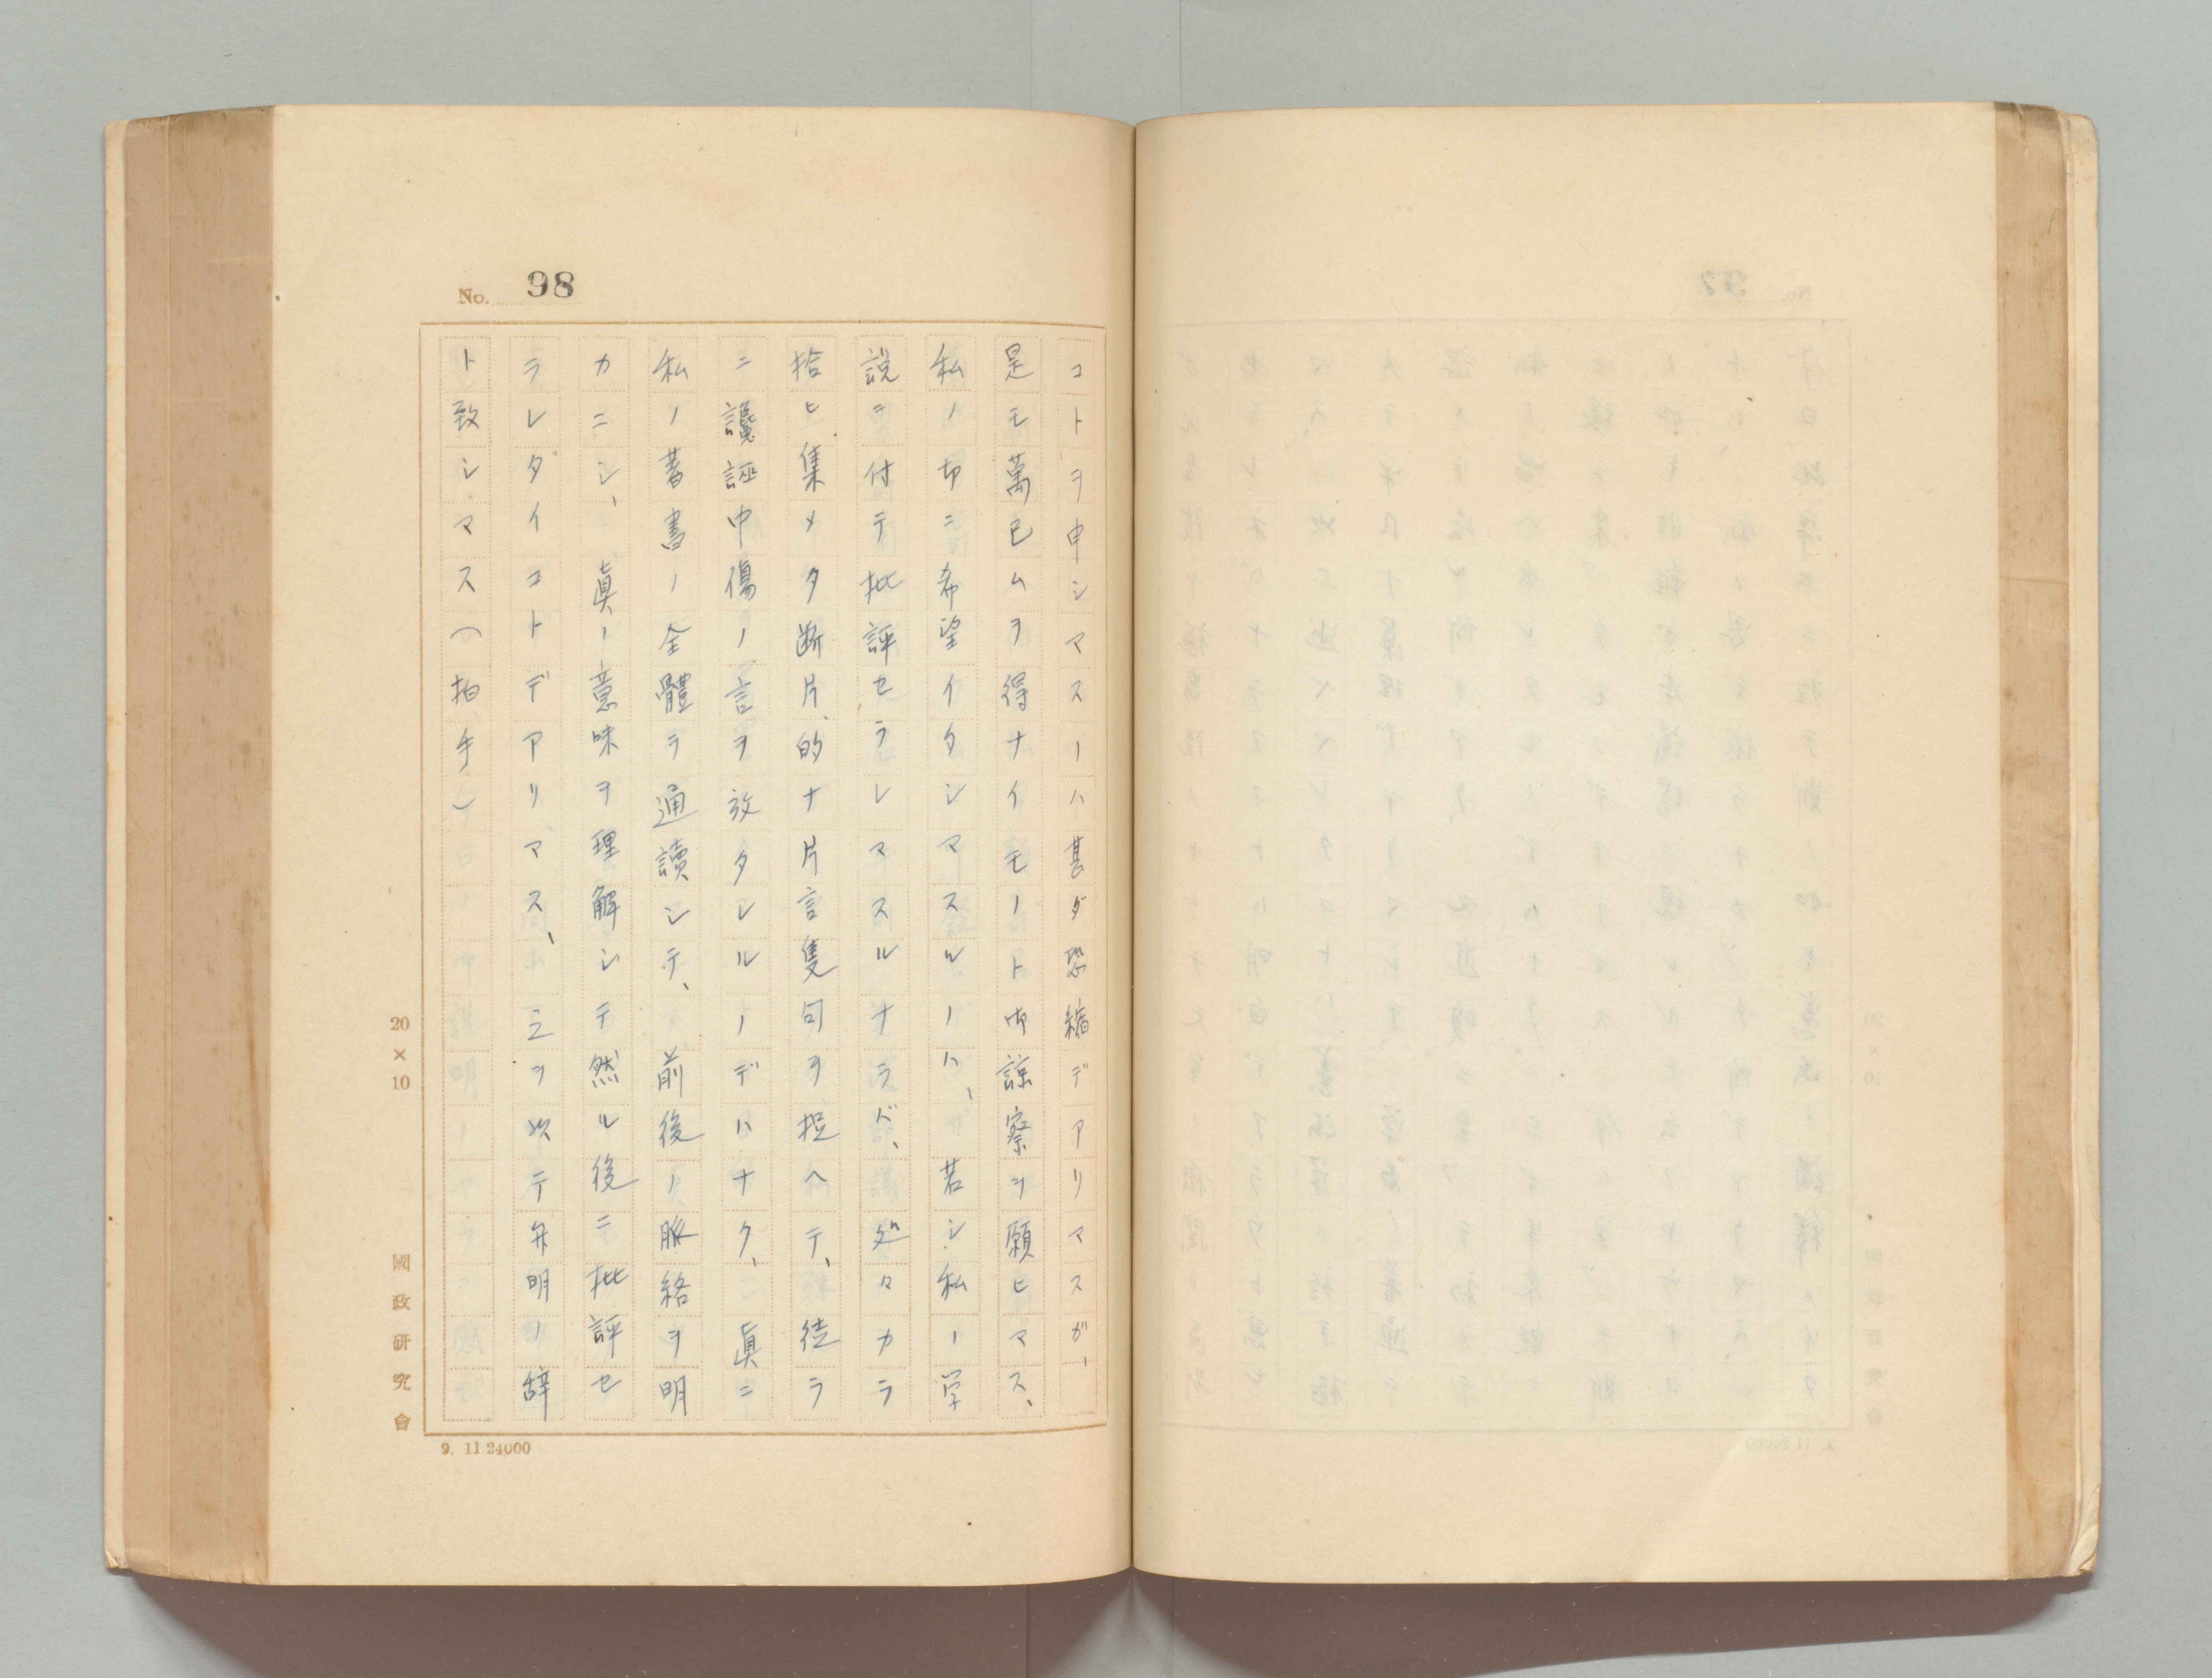 No. 98
コトヲ申シマスノハ甚ダ恐縮デアリマスガ、
是モ萬已ムヲ得ナイモノト御諒察ヲ願ヒマス、
私ノ切ニ希望イタシマスルノハ、若シ私ノ学
説ニ付テ批評セラレマスルナラバ、処々カラ
拾ヒ集メタ断片的ナ片言隻句ヲ捉ヘテ、徒ラ
ニ讒誣中傷ノ言ヲ放タレルノデハナク、眞ニ
私ノ著書ノ全體ヲ通讀シテ、前後ノ脈絡ヲ明
カニシ、眞ノ意味ヲ理解シテ然ル後ニ批評セ
ラレタイコトデアリマス、之ヲ以テ弁明ノ辞
ト致シマス(拍手)
20×10
國政研究會
9. 11 24000